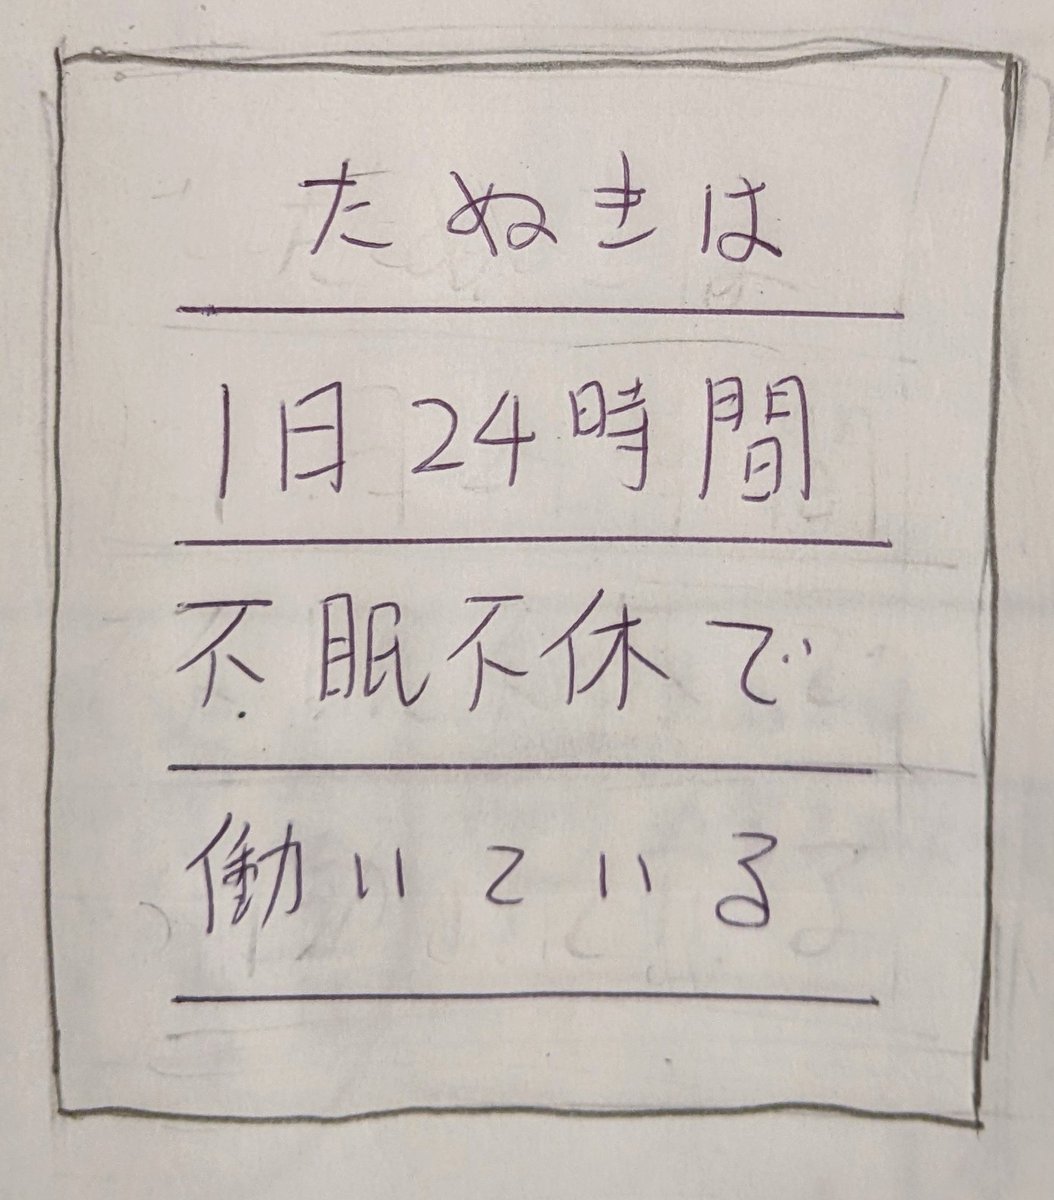 たぬきは
1日24時間
不眠不休で
働いている